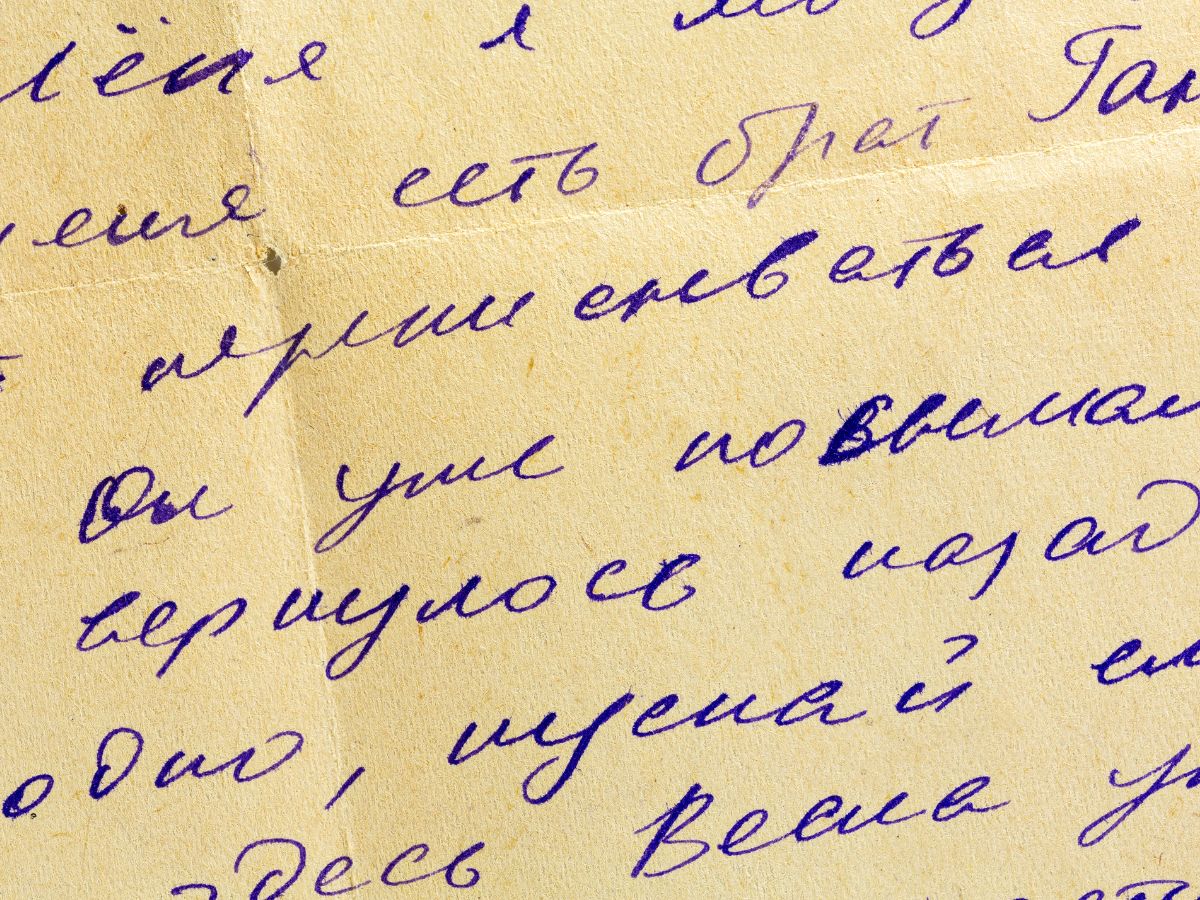 лёня я
меня есть брат Ган
переписываться
Он уже повыма
вернулось назад
одно, пускай ем
здесь Весна у